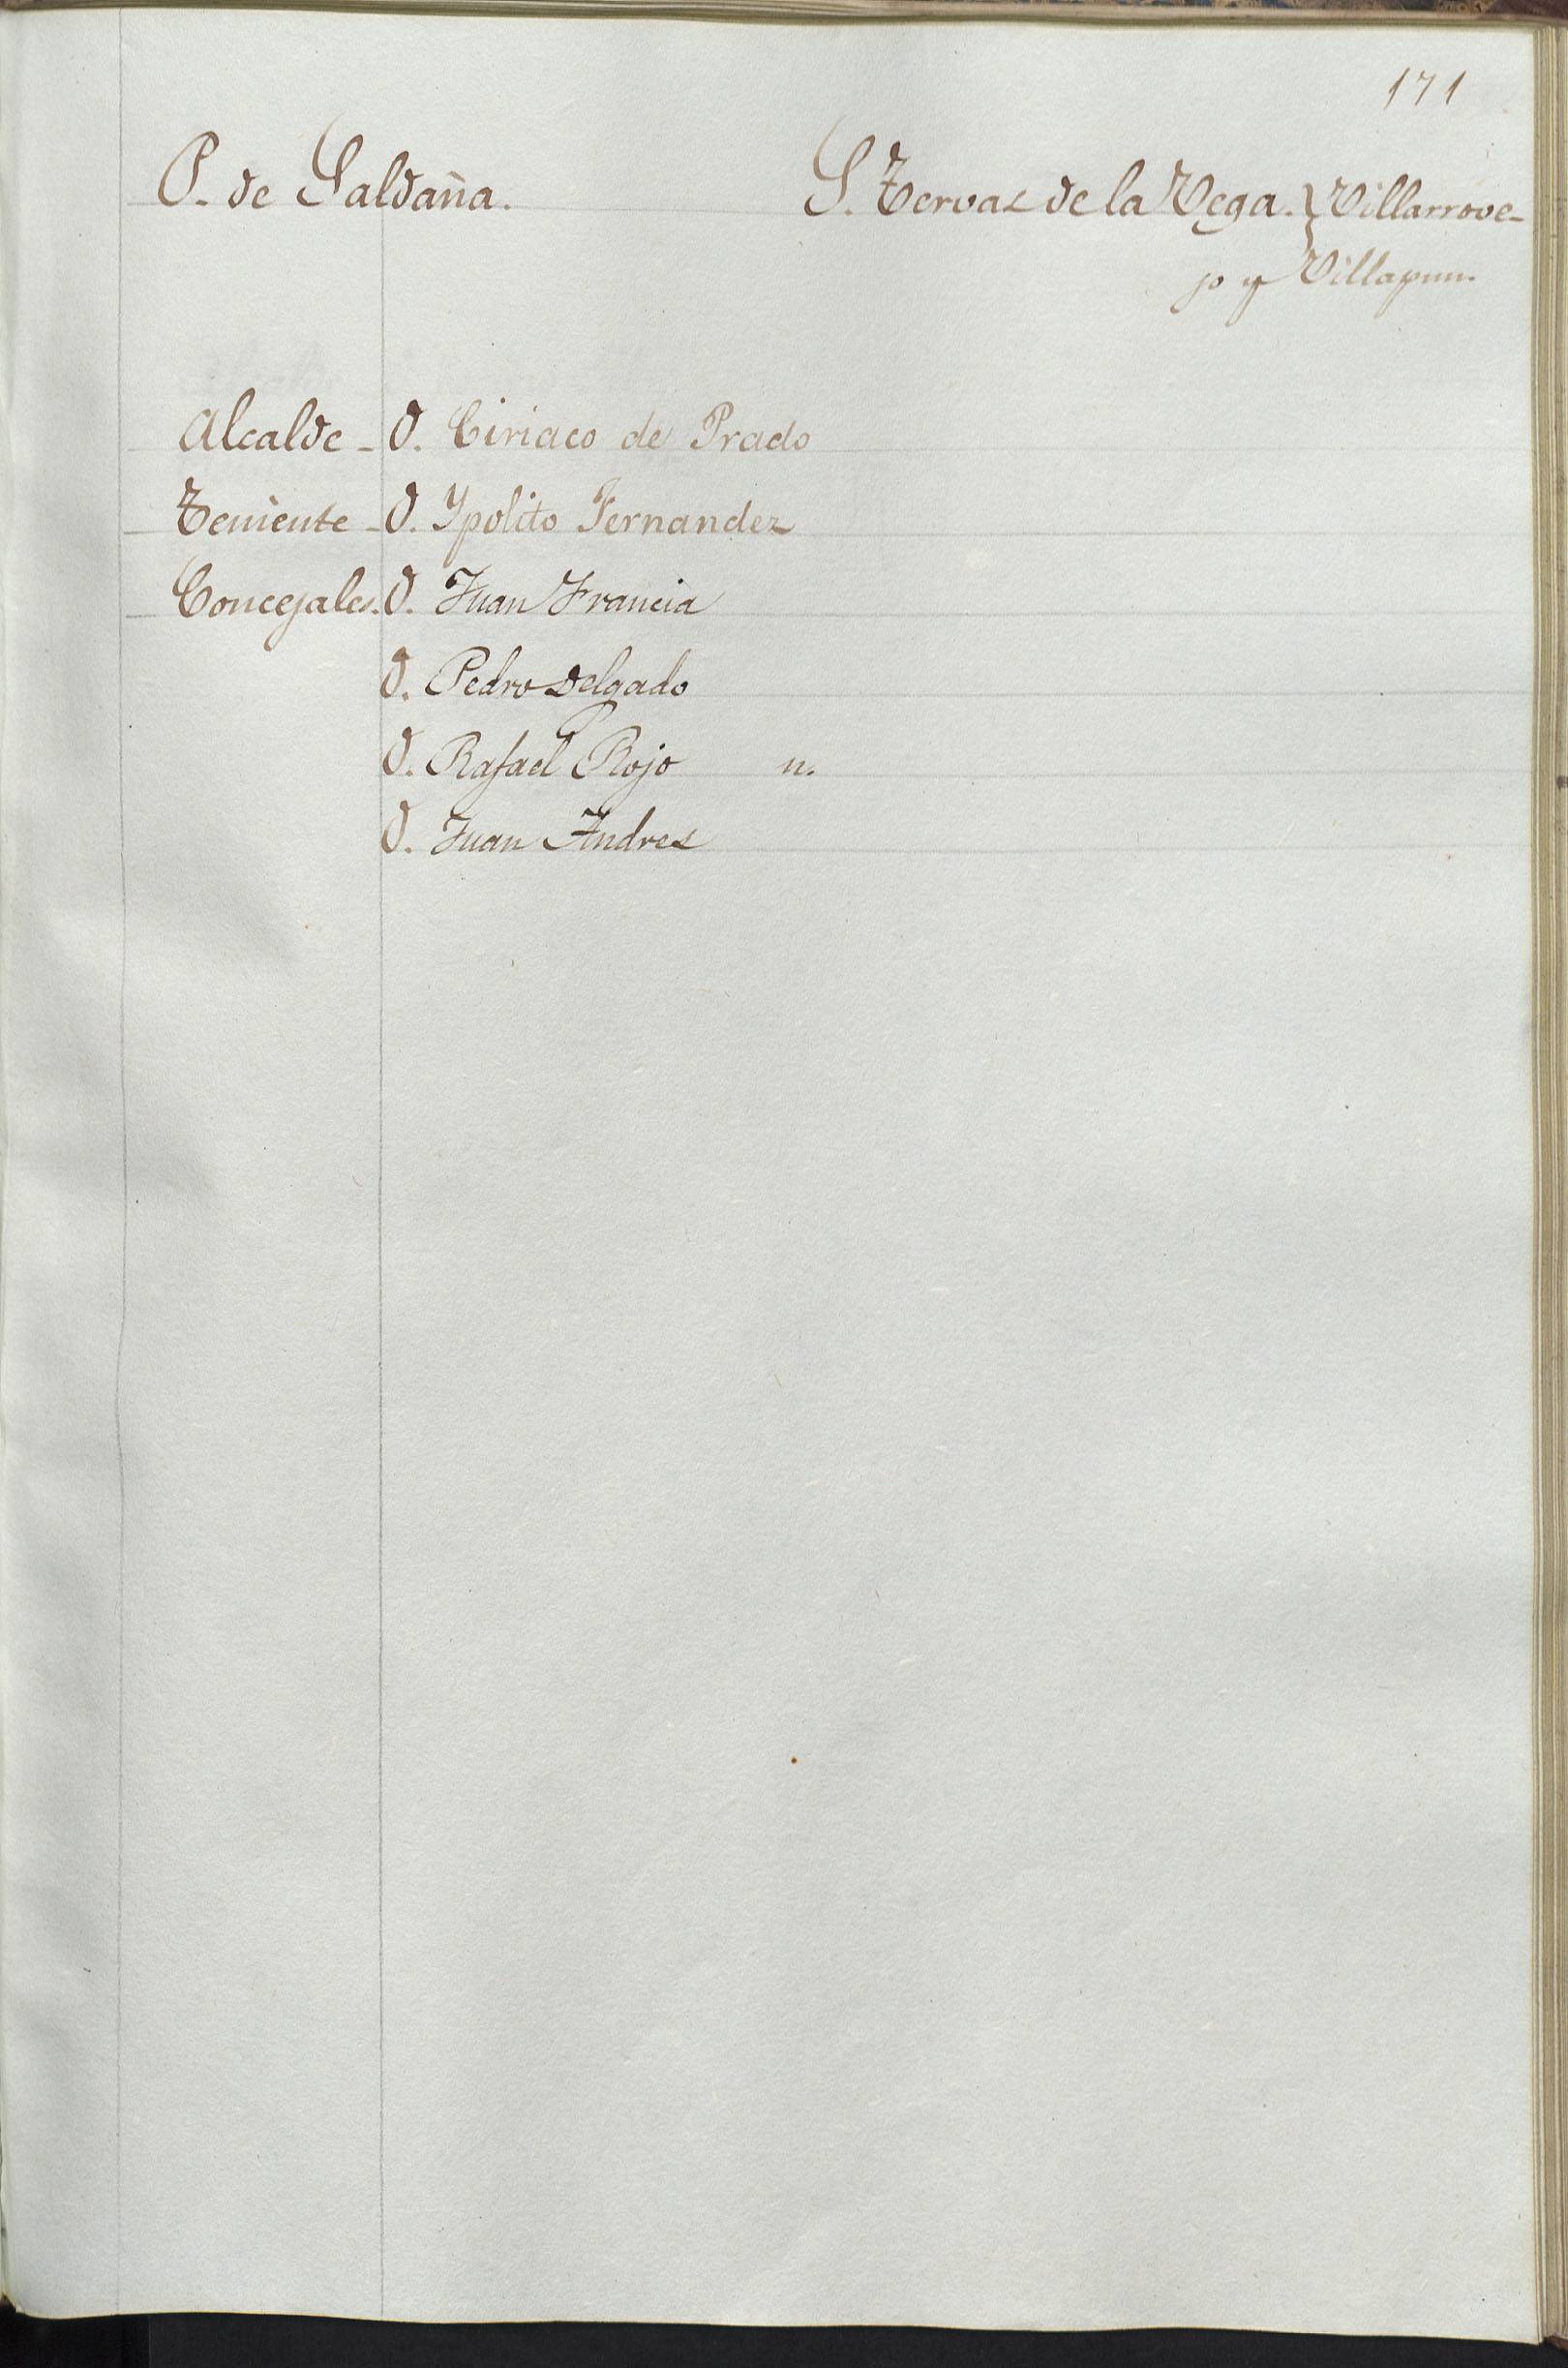 171
P. de Saldaña. S. Tervas de la Vega. } Villarrove-
jo y Villapun.
Alcalde - D. Ciriaco de Prado
Teniente - D. Ypolito Fernandez
Concejales. D. Juan Francia
D. Pedro Delgado
D. Rafael Rojo n.
D. Juan Andres